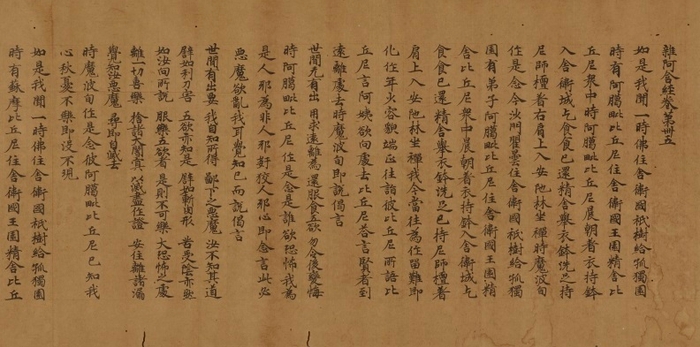 雜阿含經卷第卌五
如是我聞一時佛住舍衛國祇樹給孤獨園
時有阿臈毗比丘尼住舍衛國王園精舍比
丘尼衆中時阿臈毗比丘尼晨朝著衣持鉢
入舍衛城乞食食已還精舍舉衣鉢洗足持
尼師檀著右肩上入安陁林坐禪時魔波旬
作是念今沙門瞿曇住舍衛國祇樹給孤獨
園有弟子阿臈毗比丘尼住舍衛國王園精
舍比丘尼衆中晨朝著衣持鉢入舍衛城乞
食食已還精舍舉衣鉢洗足已持尼師檀著
肩上入安陁林坐禪我今當往為作留難即
化作年少容貌端正往詣彼比丘尼所語比
丘尼言阿姨欲何處去比丘尼荅言賢者到
遠離處去時魔波旬即說偈言
世間无有出 用求遠離為 還服食五欲 勿令後變悔
時阿臈毗比丘尼作是念是誰欲恐怖我為
是人耶為非人耶姧狡人耶心即念言此必
惡魔欲亂我耳覺知已而說偈言
世間有出要 我自知所得 鄙下之惡魔 汝不知其道
譬如利刀害 五欲亦如是 譬如斬肉形 苦受陰亦然
如汝向所說 服樂五欲者 是則不可樂 大恐怖之處
離一切喜樂 捨諸大闇冥 以滅盡作證 安住離諸漏
覺知汝惡魔 尋即自滅去
時魔波旬作是念彼阿臈毗比丘尼已知我
心愁憂不樂即沒不現
如是我聞一時佛住舍衛國祇樹給孤獨園
時有蘇摩比丘尼住舍衛國王園精舍比丘